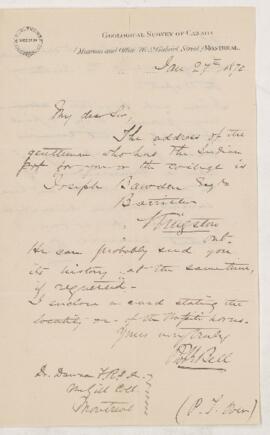 GEOLOGICAL SURVEY OF CANADA
Museum and Office 76 St Gabriel Street, MONTREAL,
Jan 27th 187
My dear Sir,
The address of the
gentleman who has the Indian
pot for you or the college is
Joseph Bawden Esq
Barrister
Kingston
Ont.
He can probably send you
its history at the same time,
if required.
I enclose a card stating the
locality of the Wapiti horns.
Yours very truly
Robt Bell
Dr. Dawson F.R.S.
McGill Coll.
Montreal
(P. T. Over)